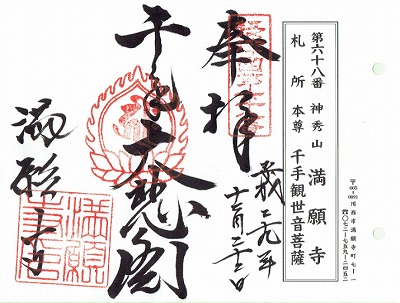 〒665-0891 川西市満願寺町七-一
☎〇七二-七五九-二四五二
第六十八番 神秀山 満願寺
札所 本尊 千手観世音菩薩
奉拝
平成二九年
十二月二十三日
千手大悲閣
満願寺
満願寺印